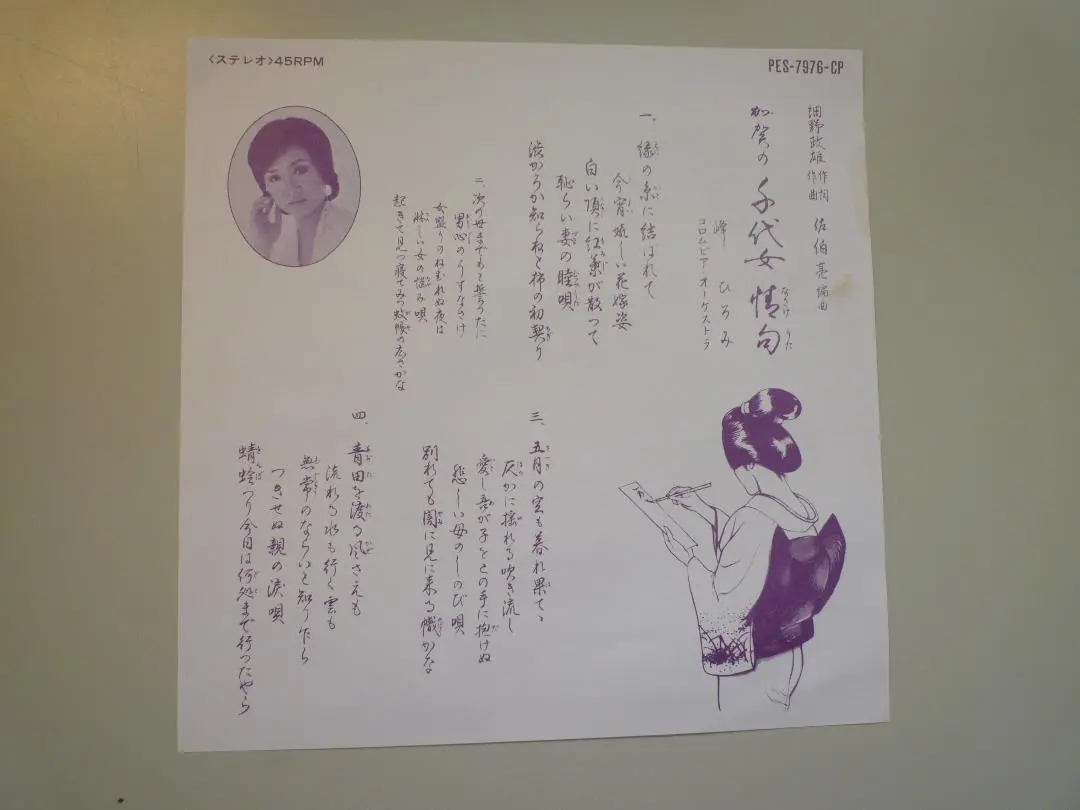 〈ステレオ〉45RPM
PES-7976-CP
細野政雄 作詞 作曲
佐伯亮 編曲
加賀の千代女情句
なさけ うた
峰 ひろみ
コロムビア・オーケストラ
一、縁の糸に結ばれて
今宵嬉しい花嫁姿
白い項に紅葉が散って
恥らい妻の睦唄
渋かろか知らねど柿の初契り
二、次の母までもと誓ったに
男心のうすなさけ
女盛りのねむれぬ夜は
淋しい女の悩み唄
起きて見つ寝てみつ蚊帳の広さかな
三、五月の空も暮れ果てゝ
仄かに揺れる吹き流し
愛し吾が子をこの手に抱けぬ
悲しい母のしのび唄
別れても闇に見に来る幟かな
四、青田を渡る風さえも
流れる水も行く雲も
無常のならいと知り乍ら
つきせぬ親の涙唄
蜻蛉つり今日は何処まで行ったやら